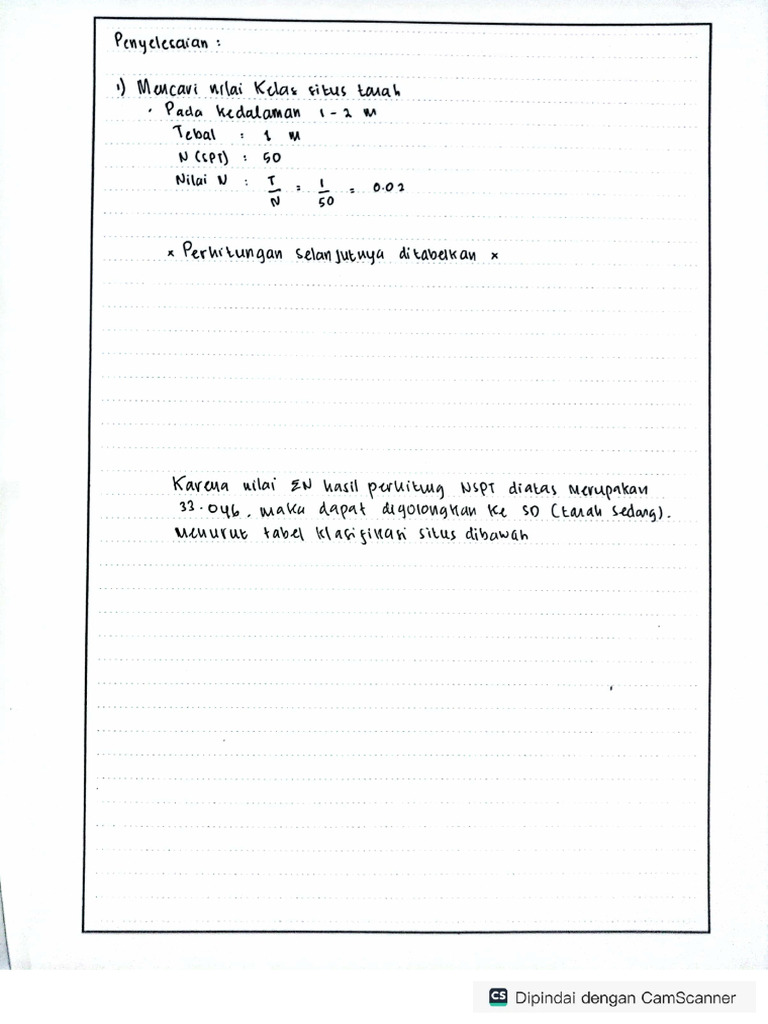 Penyelesaian :
1) Mencari nilai Kelas situs tanah
• Pada kedalaman 1 - 2 M
Tebal : 1 M
N (SPT) : 50
Nilai N : T/N = 1/50 = 0.02
× Perhitungan selanjutnya ditabelkan ×
Karena nilai ΣN hasil perhitung NSPT diatas merupakan
33.046, maka dapat digolongkan ke SD (tanah sedang).
Menurut tabel klasifikasi situs dibawah
CS Dipindai dengan CamScanner